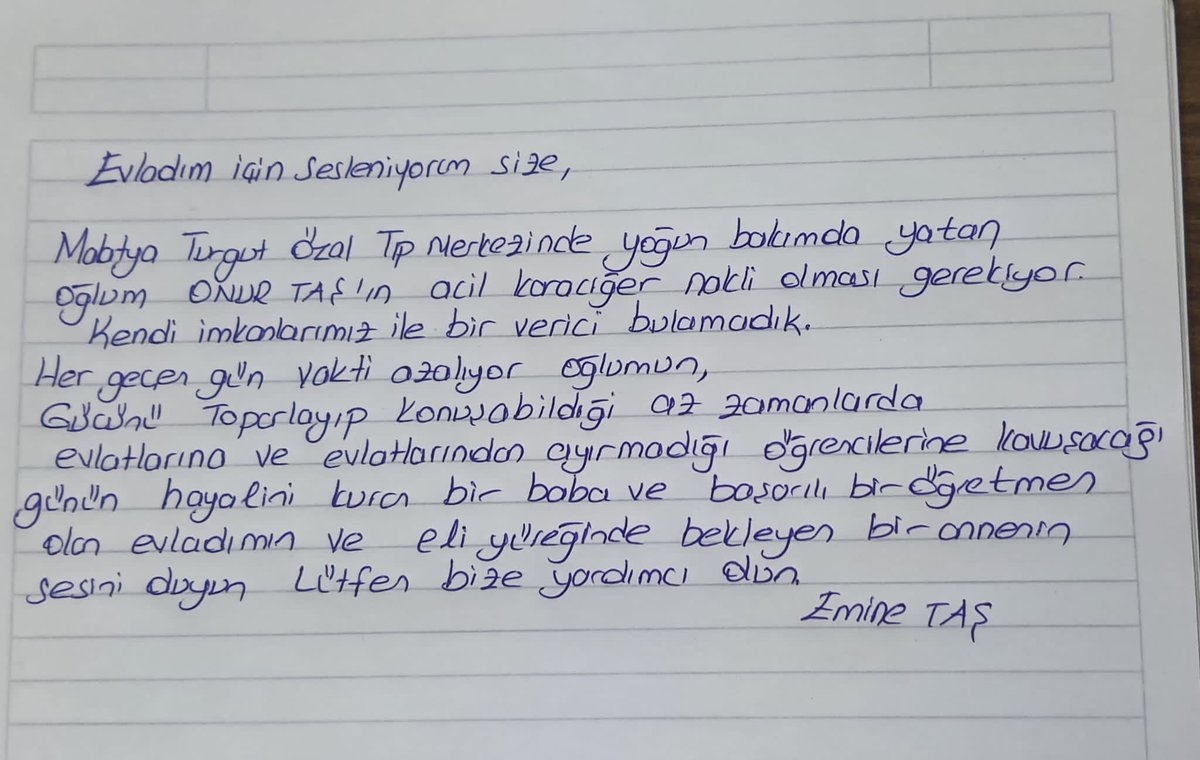 Evladım için sesleniyorum size,
Malatya Turgut Özal Tıp Merkezinde yoğun bakımda yatan
oğlum ONUR TAŞ'ın acil karaciğer nakli olması gerekiyor.
Kendi imkanlarımız ile bir verici bulamadık.
Her geçen gün vakti azalıyor oğlumun,
Gücünü Toparlayıp konuşabildiği az zamanlarda
evlatlarına ve evlatlarından ayırmadığı öğrencilerine kavuşacağı
günün hayalini kuran bir baba ve başarılı bir öğretmen
olan evladımın ve eli yüreğinde bekleyen bir annenin
sesini duyun Lütfen bize yardımcı olun.
Emine TAŞ